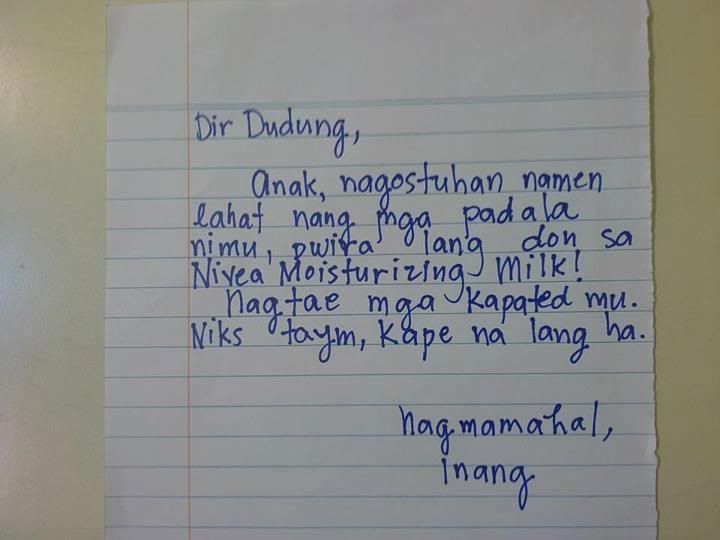 Dir Dudung,
Anak, nagostuhan namen
lahat nang mga padala
nimu, pwira lang don sa
Nivea Moisturizing Milk!
Nagtae mga kapated mu.
Niks taym, kape na lang ha.
nagmamahal,
Inang